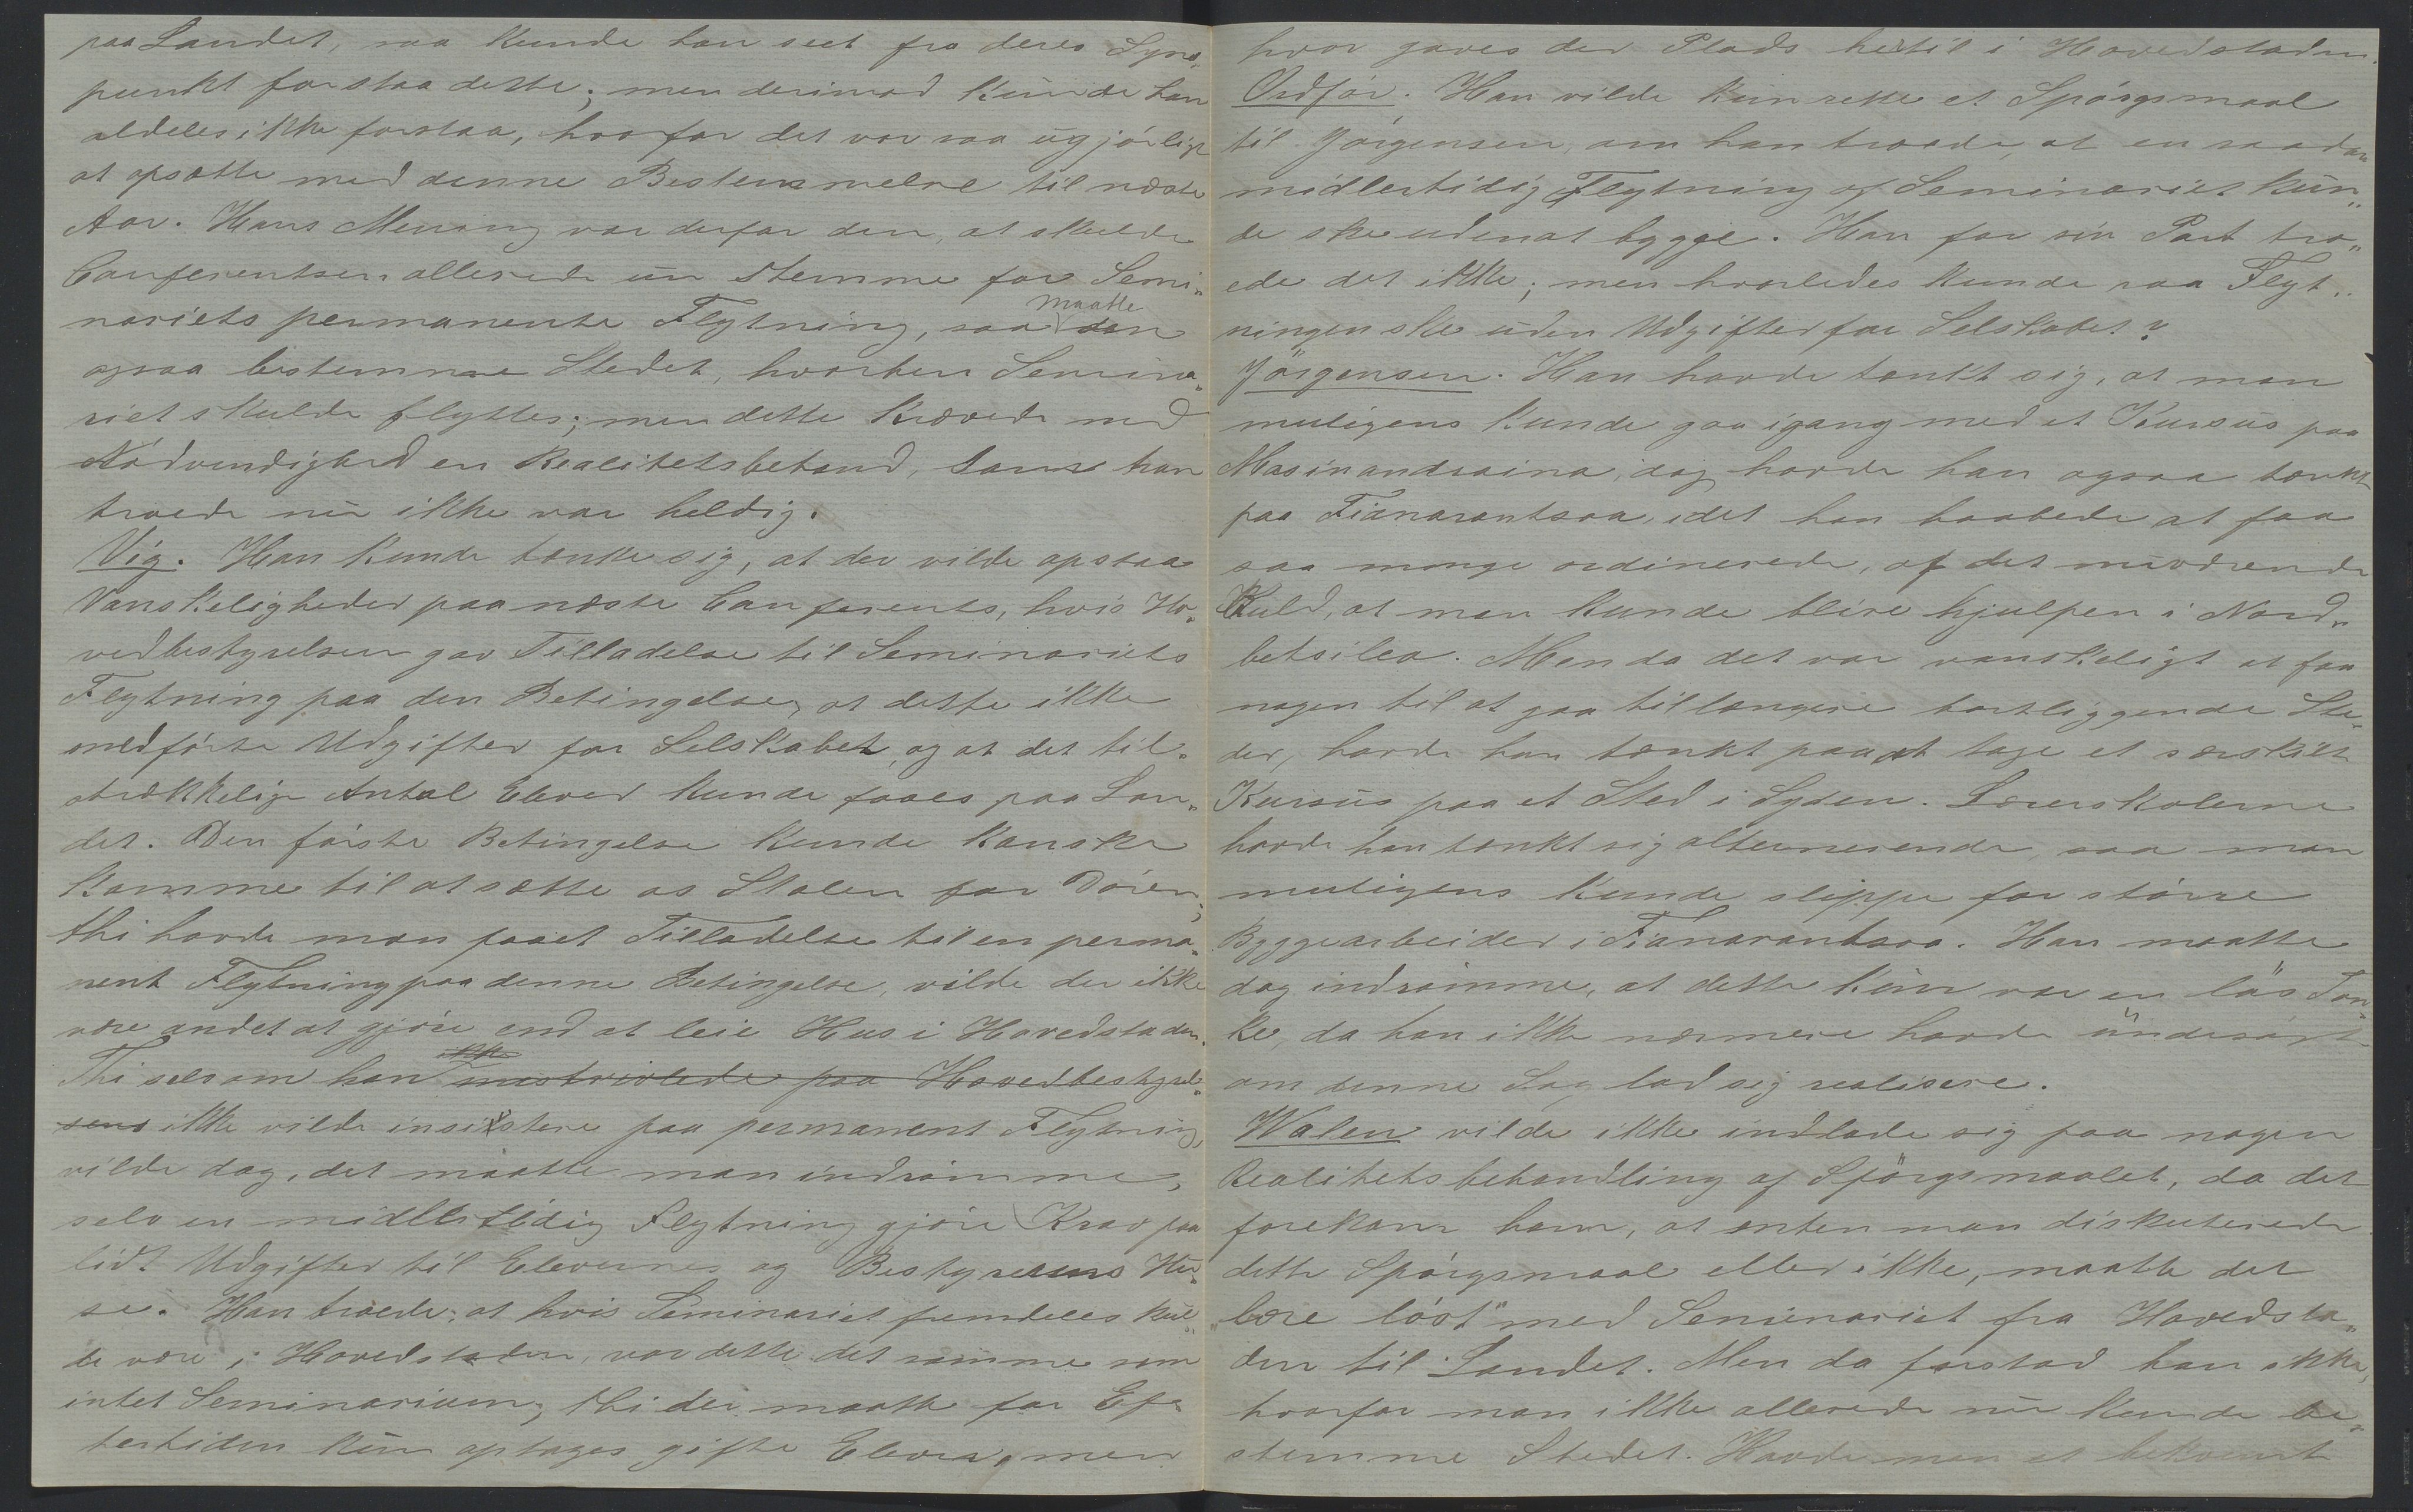 paa Landet, saa kunde han seet fra deres Syns-
punkt forstaa dette; men derimod kunde han
aldeles ikke forstaa, hvorfor det var saa ugjörligt
at opsætte med denne Bestemmelse til næste
Aar. Hans Mening var derfor den, at skulde
Conferentsen allerede nu stemme for Semi-
nariets permanente Flytning, saa maatte den
ogsaa bestemme Stedet, hvorhen Semina-
riet skulde flyttes; men dette krævede med
Nödvendighed en Realitetsbehand, som han
troede nu ikke var heldig.
Vig. Han kunde tænke sig, at der vilde opstaa
Vanskeligheder paa næste Conferents, hvis Ho-
vedbestyrelsen gav Tilladelse til Seminariets
Flytning paa den Betingelse, at dette ikke
medförte Udgifter for Selskabet, og at det til-
strækkelige Antal Elever kunde faaes paa Lan-
det. Den förste Betingelse kunde kanske
komme til at sætte os Stolen for Dören;
thi havde man faaet Tilladelse til en perma-
nent Flytning paa denne Betingelse, vilde der ikke
være andet at gjöre end at leie Hus i Hovedstaden.
Thi selv om han ikke mistvivlede paa Hovedbestyrel-
sens ikke vilde insistere paa permanent Flytning,
vilde dog, det maatte man indrömme,
selv en midlertidig Flytning gjöre Krav paa
lidt Udgifter til Elevernes og Bestyrerens Hu-
se. Han troede, at hvis Seminariet fremdeles skul-
de være i Hovedstaden, var dette det samme som
intet Seminarium; thi der maatte for Ef-
tertiden kun optages gifte Elever, men
hvor gaves der Plads hertil i Hovedstaden.
Ordför. Han vilde kun rette et Spörgsmaal
til Jörgensen, om han troede, at en saadan
midlertidig Flytning af Seminariet kun-
de ske uden at bygge. Han for sin Part tro-
ede det ikke; men hvorledes kunde saa Flyt-
ningen ske uden Udgifter for Selskabet?
Jörgensen. Han havde tænkt sig, at man
muligens kunde gaa igang med et Kursus paa
Masinandraina, dog havde han ogsaa tænkt
paa Fianarantsoa, idet han haabede at faa
saa mange ordinerede, af det nuværende
Kuld, at man kunde blive hjulpen i Nord-
betsileo. Men da det var vanskeligt at faa
nogen til at gaa til længere bortliggende Ste-
der, havde han tænkt paa at tage et særskilt
Kursus paa et Sted i Syden. Lærerskolerne
havde han tænkt sig alternerende, saa man
muligens kunde slippe for större
Byggearbeider i Fianarantsoa. Han maatte
dog indrömme, at dette kun var en lös Tan-
ke, da han ikke nærmere havde undersögt
om denne Sag lod sig realisere.
Walen vilde ikke indlade sig paa nogen
Realitetsbehandling af Spörgsmaalet, da det
forekom ham, at enten man diskuterede
dette Spörgsmaal eller ikke, maatte det
"bære löst" med Seminariet fra Hovedsta-
den til Landet. Men da forstod han ikke,
hvorfor man ikke allerede nu kunde be-
stemme Stedet. Havde man et bekvemt